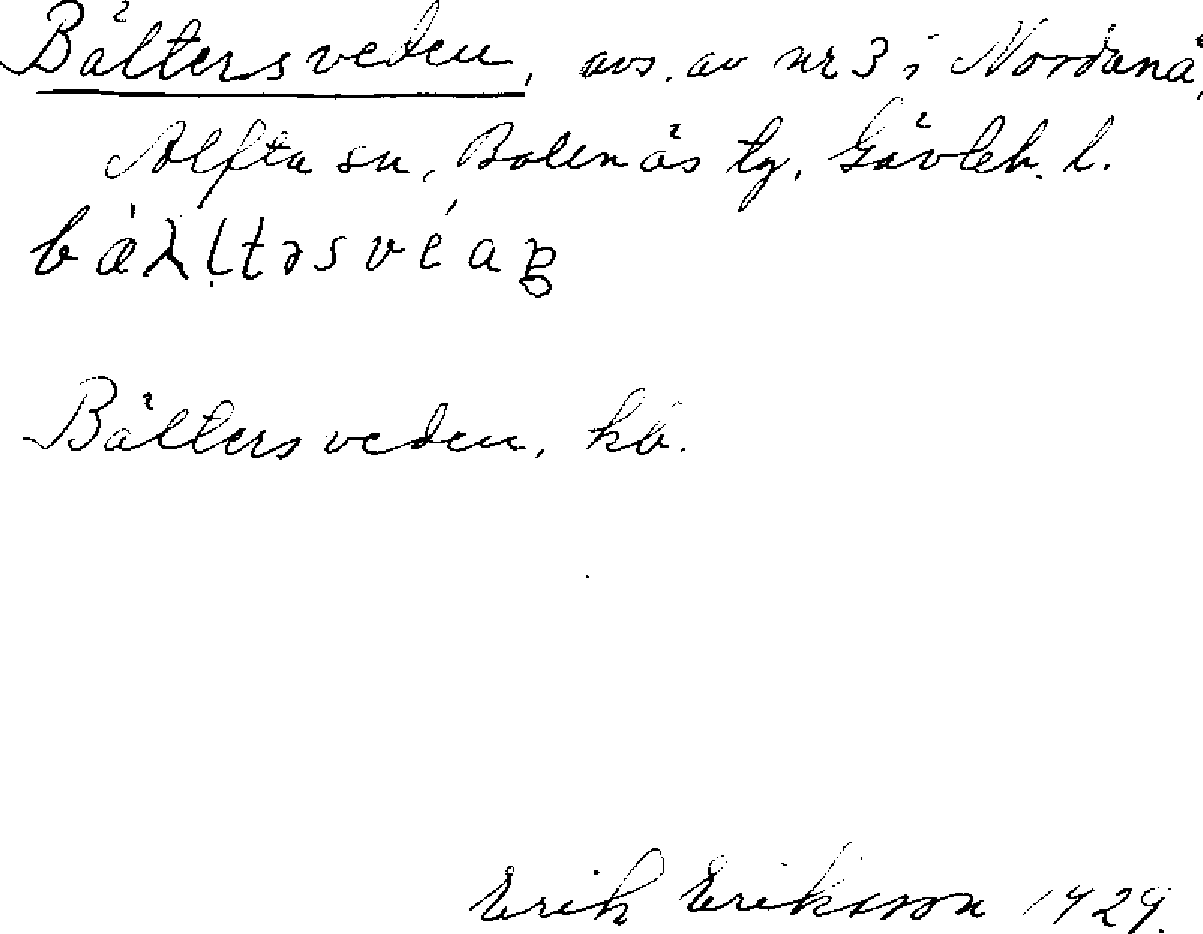 Bältersveden, avs. av nr 3 i Nordanå,
Alfta sn, Bollnäs tg, Gävleb. l.
Bältersveden, kb.
Erik Eriksson 1929.